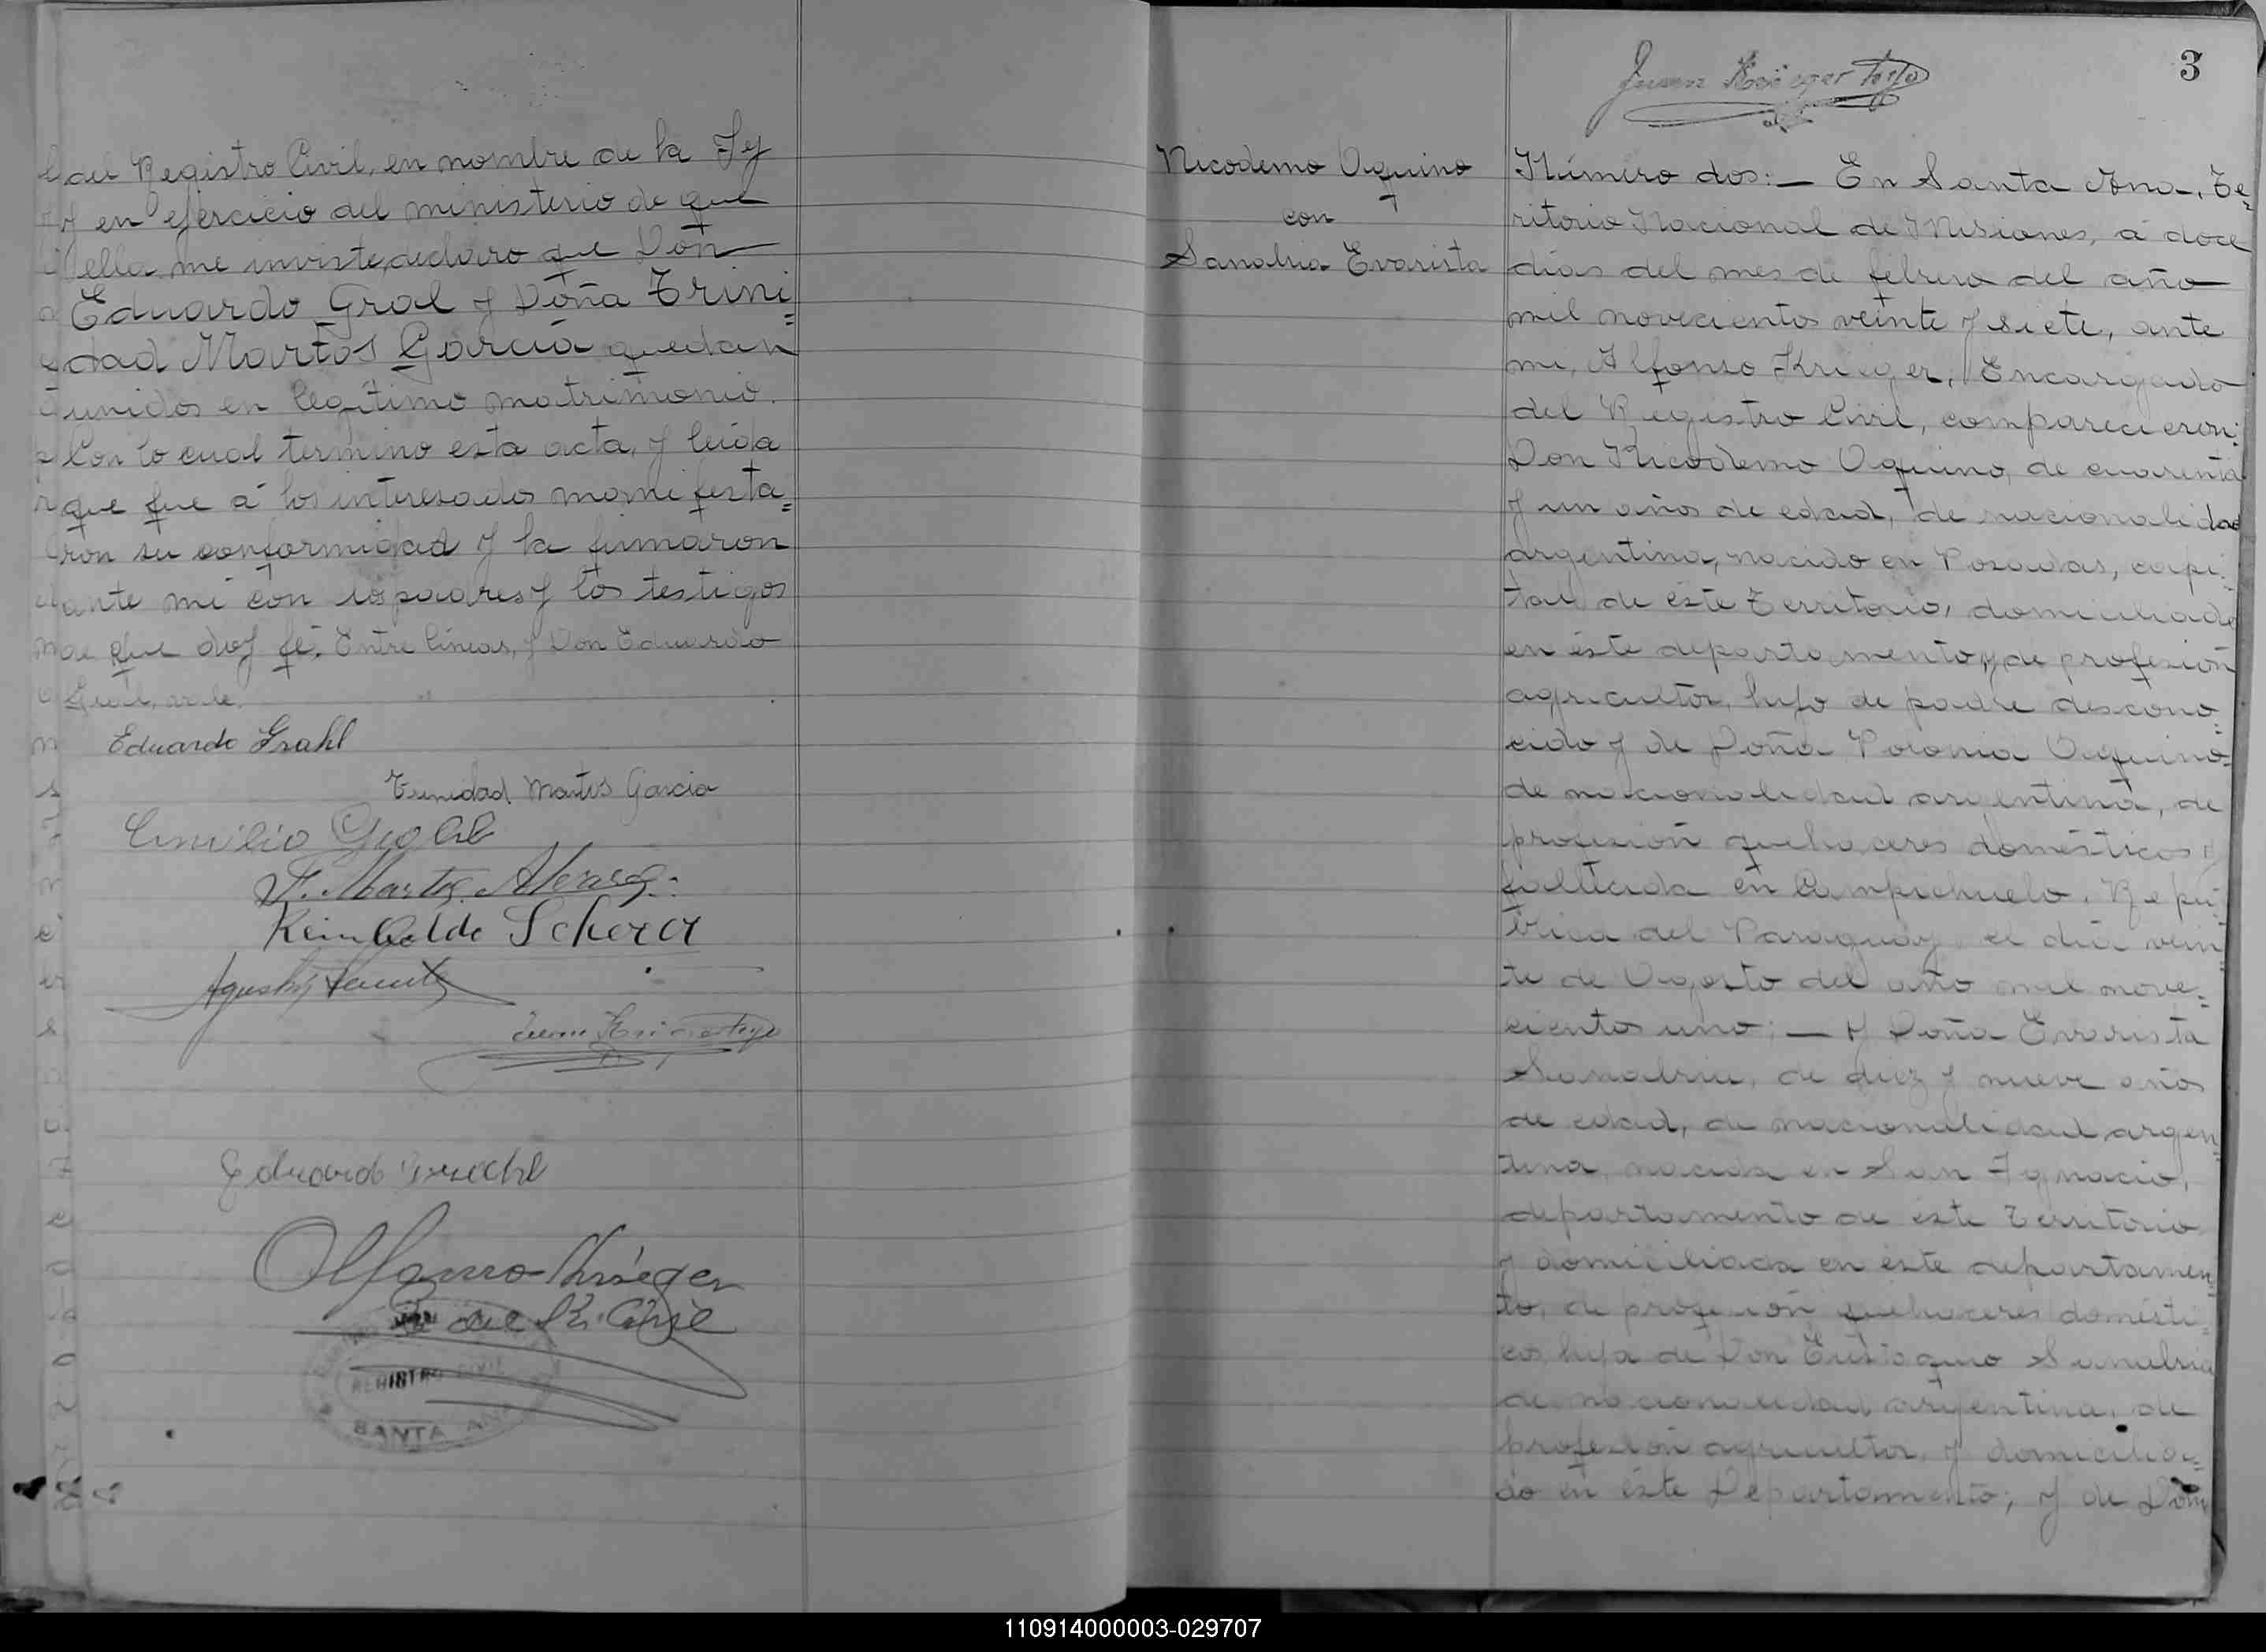 del Registro Civil, en nombre de la Ley
y en ejercicio del ministerio de que
ella me inviste, declaro que Don
Eduardo Gral y Doña Trini=
dad Martos García quedan
unidos en legítimo matrimonio.
Con lo cual termino esta acta, y leída
que fue á los interesados manifesta=
ron su conformidad y la firmaron
ante mi con los padres y los testigos
de que doy fé. Entre líneas, y Don Eduardo
Gral, vale.
Eduardo Grahl
Trinidad Martos Garcia
Emilio Grahl
F. Martos
Reinboldo Scherer
Agustin
Juan
Eduardo
Alfonso Krieger
E. del R. Civil
REGISTRO CIVIL
SANTA ANA
3
Juan Krieger
Nicodemo Aquino
con
Sanabria Evarista
Número dos:— En Santa Ana, Te=
ritorio Nacional de Misiones, á doce
días del mes de febrero del año
mil novecientos veinte y siete, ante
mi, Alfonso Krieger, Encargado
del Registro Civil, comparecieron:
Don Nicodemo Aquino, de cuarenta
y un años de edad, de nacionalidad
argentina, nacido en Posadas, capi=
tal de éste Territorio, domiciliado
en éste departamento, y de profesion
agricultor, hijo de padre descono=
cido y de Doña Polonia Aquino=
de nacionalidad argentina, de
profesión quehaceres domésticos y
fallecida en Campichuelo, Repú=
blica del Paraguay el día vein=
te de Agosto del año mil nove=
cientos uno;— Y Doña Evarista
Sanabria, de diez y nueve años
de edad, de nacionalidad argen=
tina, nacida en San Ignacio,
departamento de éste Territorio
y domiciliada en éste departamen=
to, de profesion quehaceres domésti=
cos, hija de Don Eustoquio Sanabria
de nacionalidad argentina, de
profesión agricultor, y domicilia=
do en éste Departamento; y de Doña
110914000003-029707